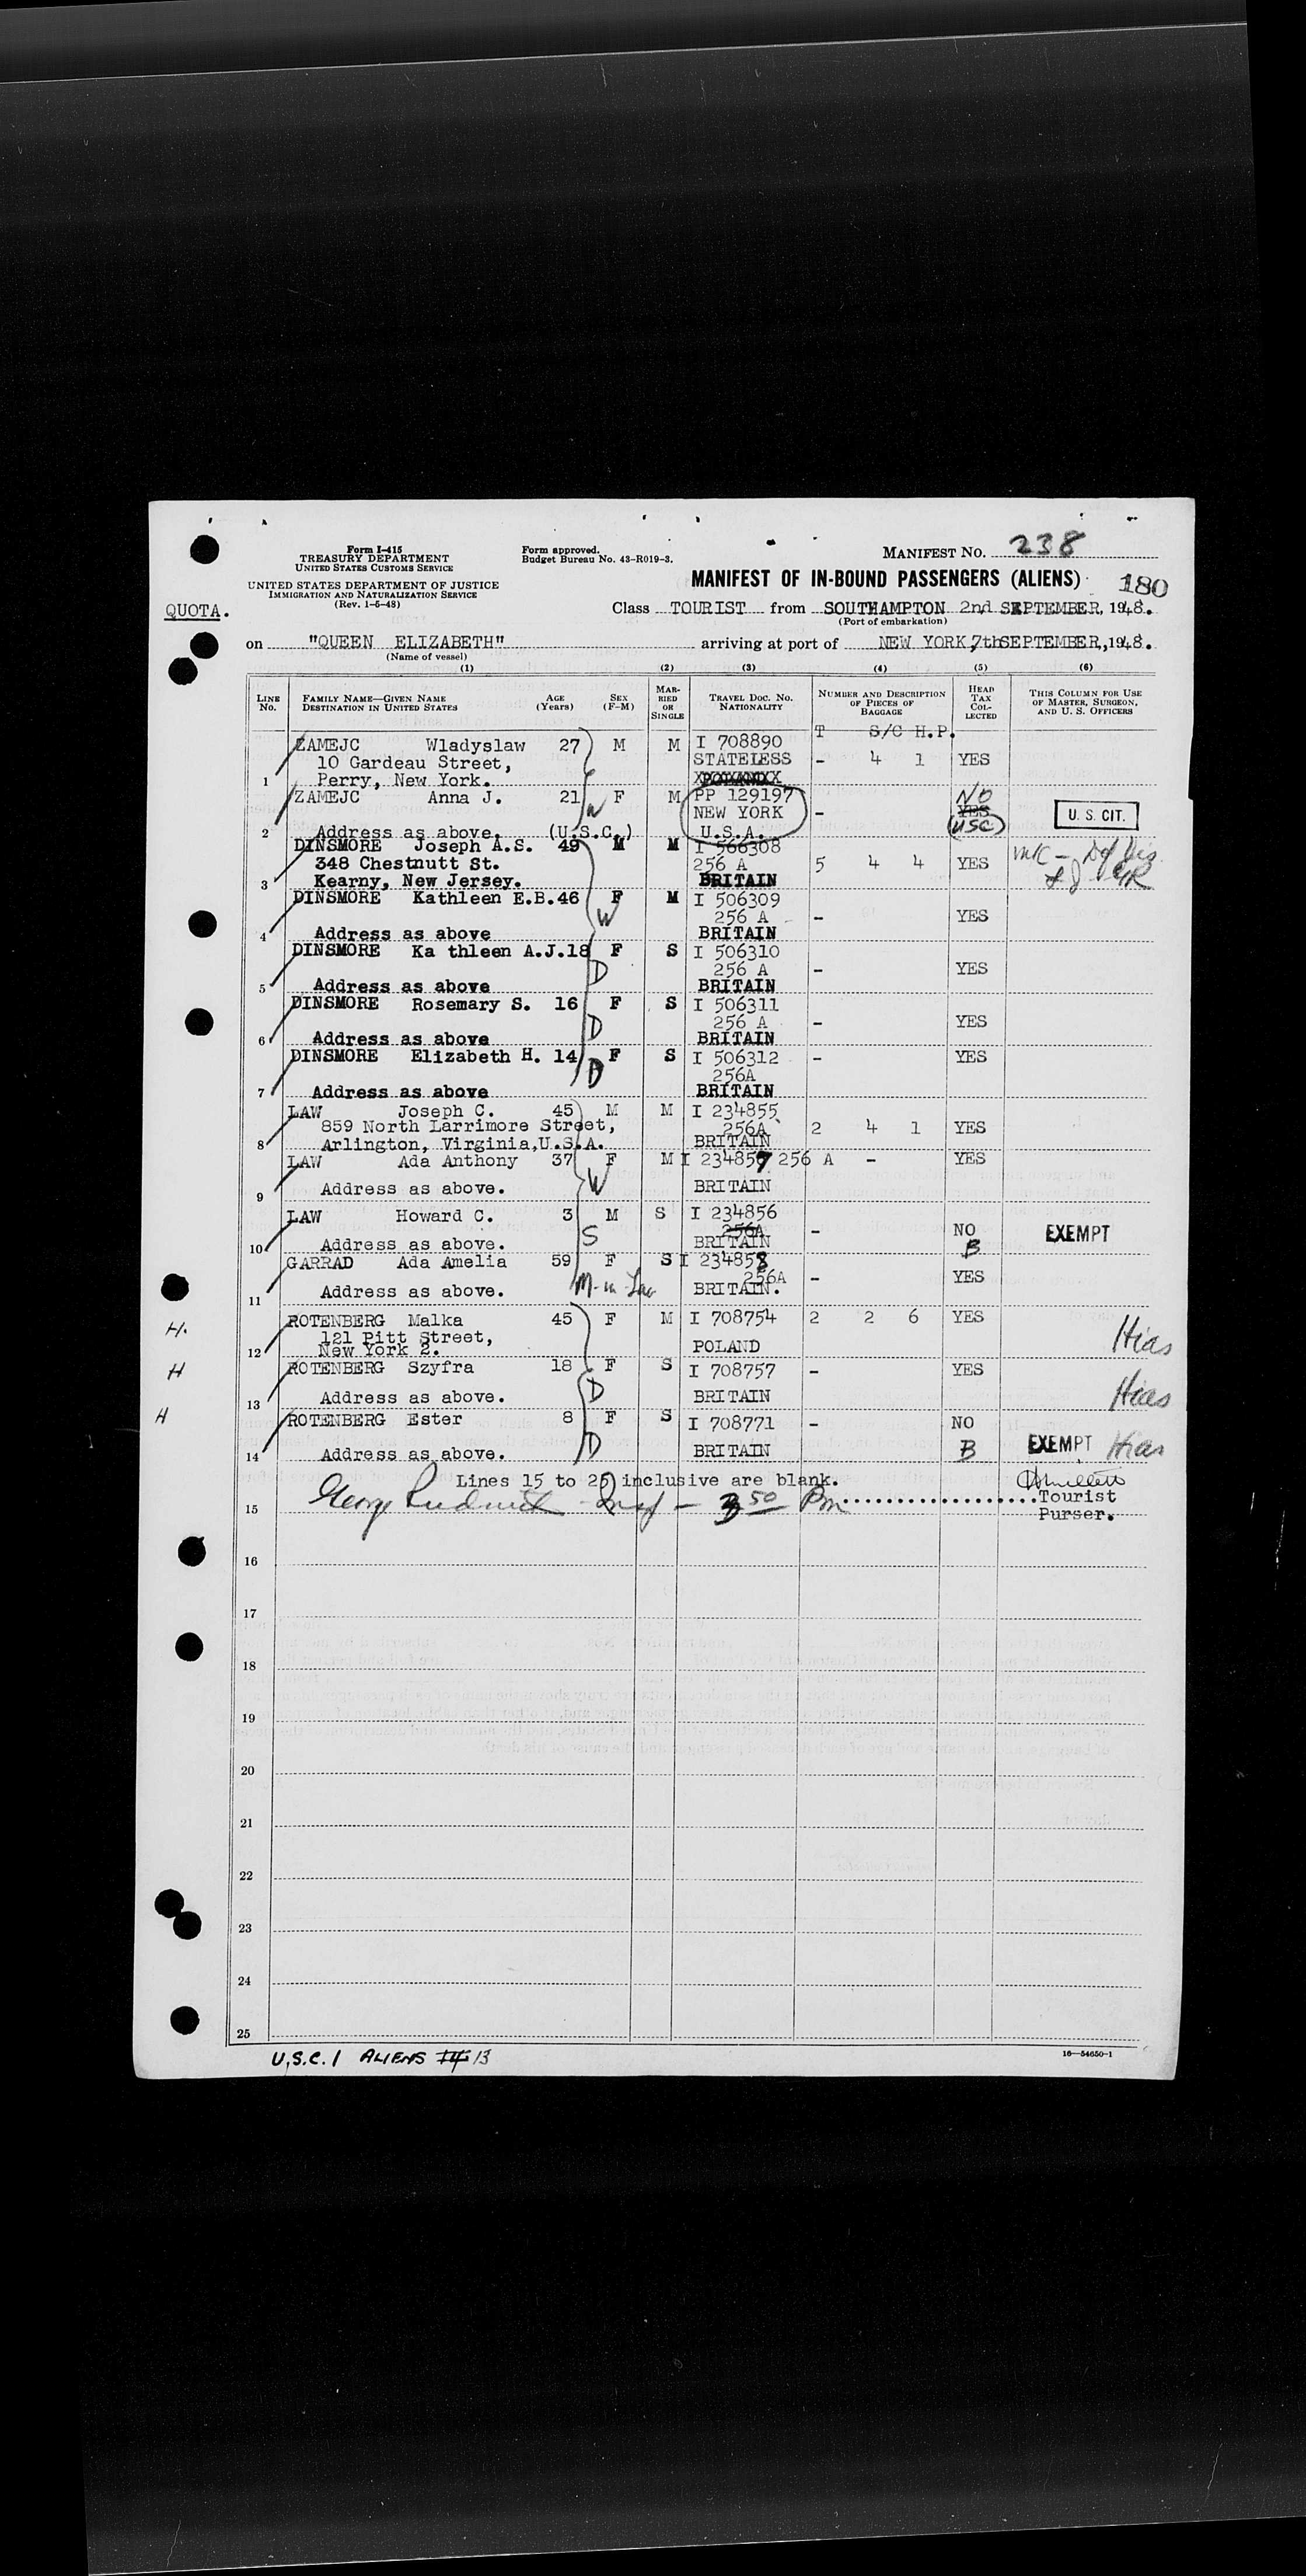 Form I-415
TREASURY DEPARTMENT
UNITED STATES CUSTOMS SERVICE
UNITED STATES DEPARTMENT OF JUSTICE
IMMIGRATION AND NATURALIZATION SERVICE
(Rev. 1-5-48)
Form approved.
Budget Bureau No. 43-R019-3.
MANIFEST NO. 238
MANIFEST OF IN-BOUND PASSENGERS (ALIENS) 180
QUOTA.
Class TOURIST from SOUTHAMPTON 2nd SEPTEMBER, 1948.
(Port of embarkation)
on "QUEEN ELIZABETH" arriving at port of NEW YORK, 7th SEPTEMBER, 1948.
(Name of vessel)
(1) (2) (3) (4) (5) (6)
LINE No. FAMILY NAME—GIVEN NAME DESTINATION IN UNITED STATES AGE (Years) SEX (F-M) MARRIED OR SINGLE TRAVEL DOC. NO. NATIONALITY NUMBER AND DESCRIPTION OF PIECES OF BAGGAGE HEAD TAX COLLECTED THIS COLUMN FOR USE OF MASTER, SURGEON, AND U. S. OFFICERS
T S/C H.P.
ZAMEJC Wladyslaw 27 M M I 708890
10 Gardeau Street, STATELESS - 4 1 YES
1 Perry, New York.
ZAMEJC Anna J. 21 W F M PP 129197 NO
NEW YORK - YES U. S. CIT.
2 Address as above. (U.S.C.) U.S.A. USC
DINSMORE Joseph A.S. 49 M M I 566308
348 Chestnutt St. 256 A 5 4 4 YES
3 Kearny, New Jersey. BRITAIN
DINSMORE Kathleen E.B. 46 F M I 506309
W 256 A - YES
4 Address as above BRITAIN
DINSMORE Ka thleen A.J. 18 F S I 506310
D 256 A - YES
5 Address as above BRITAIN
DINSMORE Rosemary S. 16 F S I 506311
D 256 A - YES
6 Address as above BRITAIN
DINSMORE Elizabeth H. 14 F S I 506312 - YES
D 256A
7 Address as above BRITAIN
LAW Joseph C. 45 M M I 234855
859 North Larrimore Street, 256A 2 4 1 YES
8 Arlington, Virginia,U.S.A. BRITAIN
LAW Ada Anthony 37 F M I 234857 256 A - YES
9 Address as above. W BRITAIN
LAW Howard C. 3 M S I 234856
S 256A - NO EXEMPT
10 Address as above. BRITAIN B
GARRAD Ada Amelia 59 F S I 234858
256A - YES
11 Address as above. M-in Law BRITAIN.
H. ROTENBERG Malka 45 F M I 708754 2 2 6 YES
121 Pitt Street, Hias
12 New York 2. POLAND
H ROTENBERG Szyfra 18 F S I 708757 - YES
13 Address as above. D BRITAIN Hias
H ROTENBERG Ester 8 F S I 708771 - NO
14 Address as above. D BRITAIN B EXEMPT Hias
Lines 15 to 25 inclusive are blank.
15 George 3 50 Pm Tourist
Purser.
16
17
18
19
20
21
22
23
24
25
U.S.C. 1 ALIENS 14 13
16—54650-1